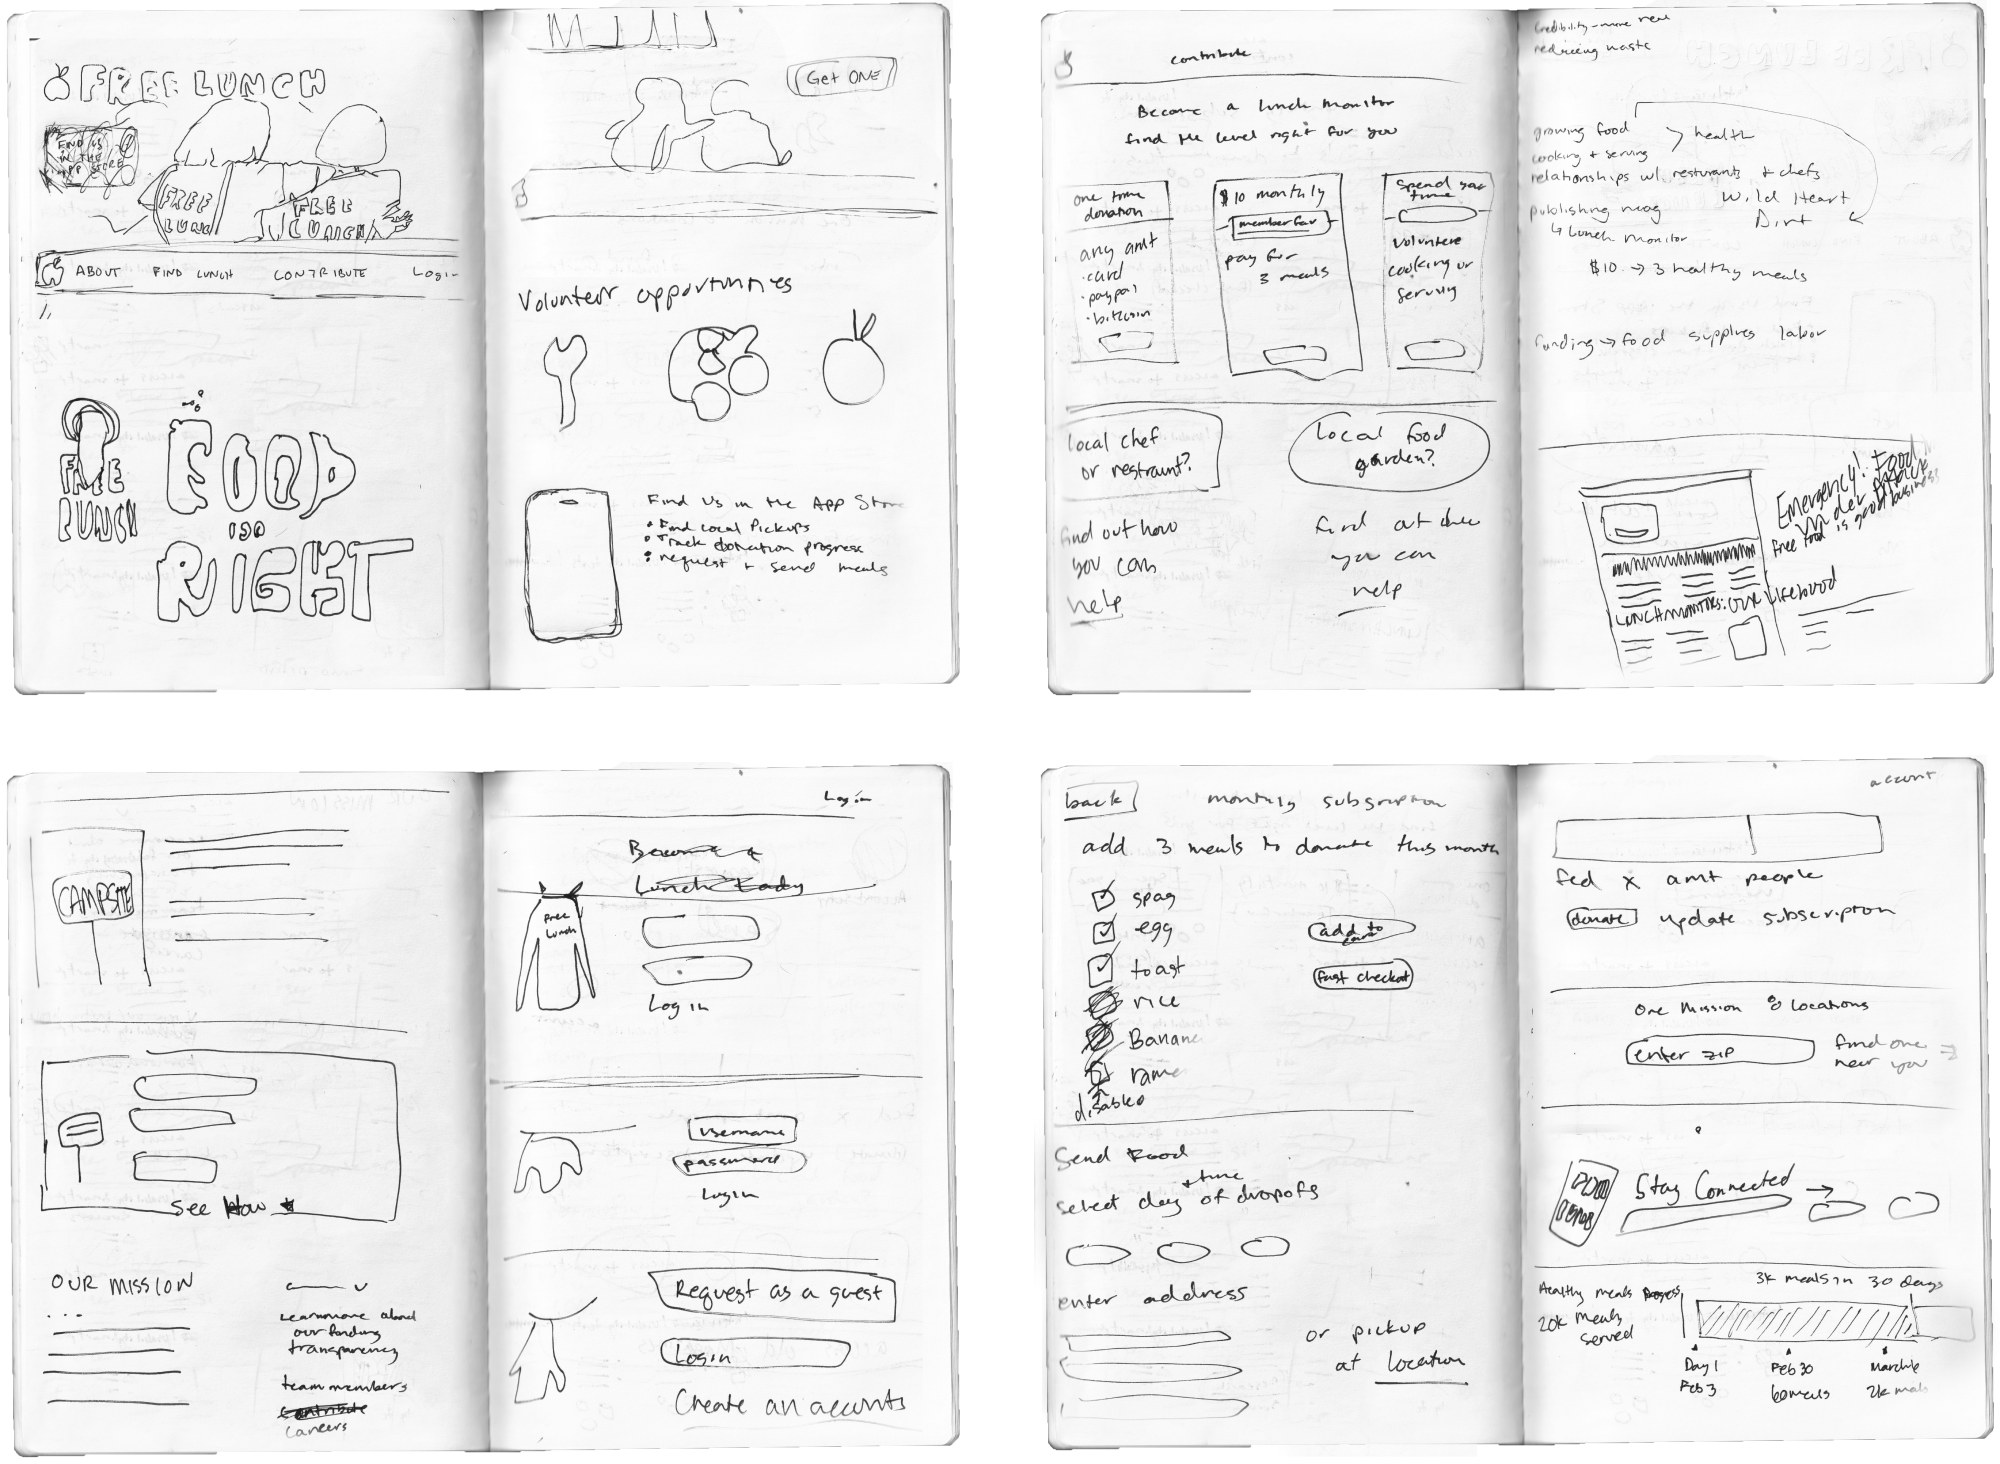 FREE LUNCH
FIND US
IN THE
APP STORE
FREE
LUNCH
FREE
LUNCH
ABOUT FIND LUNCH CONTRIBUTE Login
FREE
LUNCH
FOOD
IS A
RIGHT
Get ONE
Volunteer opportunities
Find Us in the App Store
Find Local Pickups
Track donation progress
request + send meals
contribute
Become a lunch monitor
find the level right for you
one time
donation
any amt
• card
• paypal
• bitcoin
$10 monthly
member fav
pay for
3 meals
Spend your
time
volunteere
cooking or
serving
local chef
or restraunt?
find out how
you can
help
Local food
garden?
find out how
you can
help
Credibility - more real
reducing waste
growing food
health
cooking + serving
relationships w/ resturants + chefs
Wild Heart
Dirt
publishing mag
↳ Lunch monitor
$10 → 3 healthy meals
funding → food supplies labor
Emergency! Food
Under Attack
free food is good business
LUNCH MONITORS: OUR Lifeblood
CAMPSITE
See How
OUR MISSION
...
Learn more about
our funding
transparency
team members
Contribute
Careers
Login
Become a
Lunch Lady
Free
Lunch
Log in
username
password
Login
Request as a guest
Login
Create an accounts
back
monthly subsription
add 3 meals to donate this month
spag
egg
toast
rice
Banana
rame
disabled
add to
cart
fast checkot
Send Food
+ time
select day of dropofs
enter address
or pickup
at location
account
fed x amt people
donate update subscription
One Mission 8 locations
enter zip
find one
near you
Stay Connected →
3k meals in 30 days
Healthy meals
20k meals
served
Day 1
Feb 3
Feb 30
60 meals
2k meals